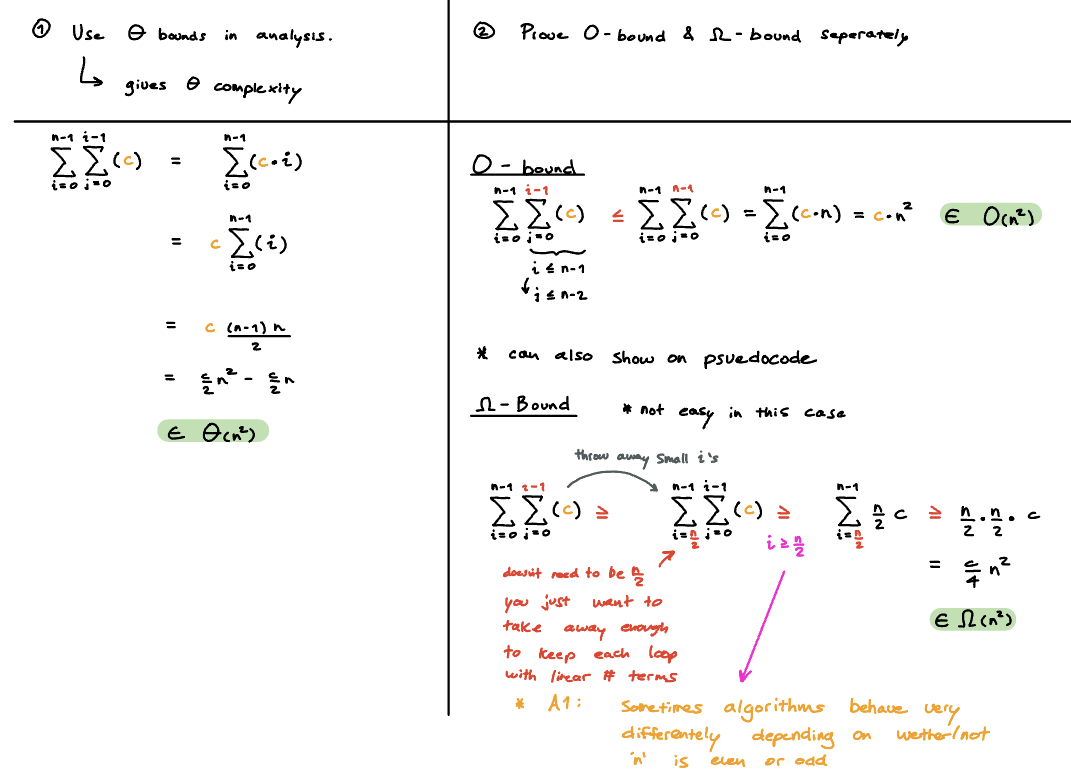 ① Use Θ bounds in analysis.
↳ gives Θ complexity
∑_{i=0}^{n-1} ∑_{j=0}^{i-1} (c) = ∑_{i=0}^{n-1} (c·i)
= c ∑_{i=0}^{n-1} (i)
= c (n-1)n / 2
= c/2 n² - c/2 n
∈ Θ(n²)
② Prove O-bound & Ω-bound seperately
O-bound
∑_{i=0}^{n-1} ∑_{j=0}^{i-1} (c) ≤ ∑_{i=0}^{n-1} ∑_{j=0}^{n-1} (c) = ∑_{i=0}^{n-1} (c·n) = c·n² ∈ O(n²)
i ≤ n-1
↓ j ≤ n-2
* can also show on psuedocode
Ω-Bound * not easy in this case
throw away small i's
∑_{i=0}^{n-1} ∑_{j=0}^{i-1} (c) ≥ ∑_{i=n/2}^{n-1} ∑_{j=0}^{i-1} (c) ≥ ∑_{i=n/2}^{n-1} n/2 c ≥ n/2 · n/2 · c
i ≥ n/2
= c/4 n²
∈ Ω(n²)
doesn't need to be n/2
you just want to
take away enough
to keep each loop
with linear # terms
* A1: Sometimes algorithms behave very
differentely depending on wetter/not
'n' is even or odd